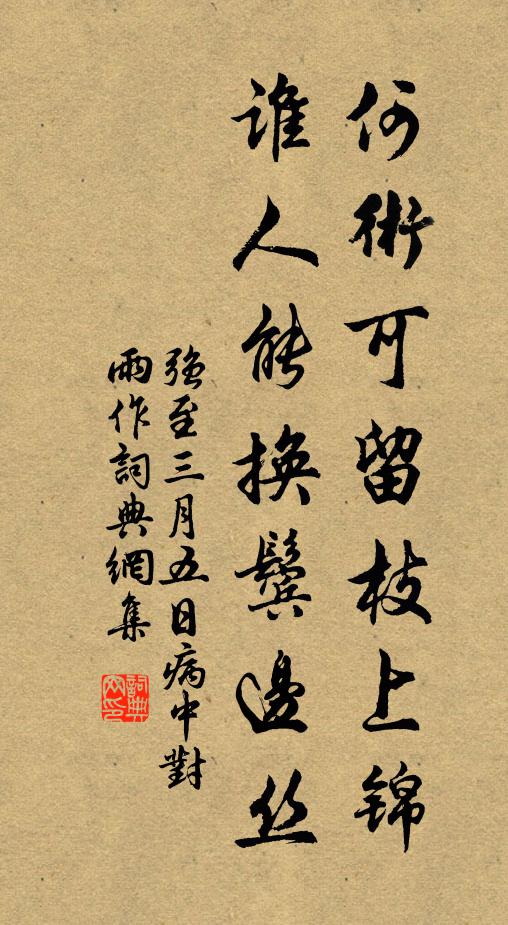 何術可留枝上锦
谁人能换鬓邊丝
强至三月五日病中對
雨作詞典網集
詞典